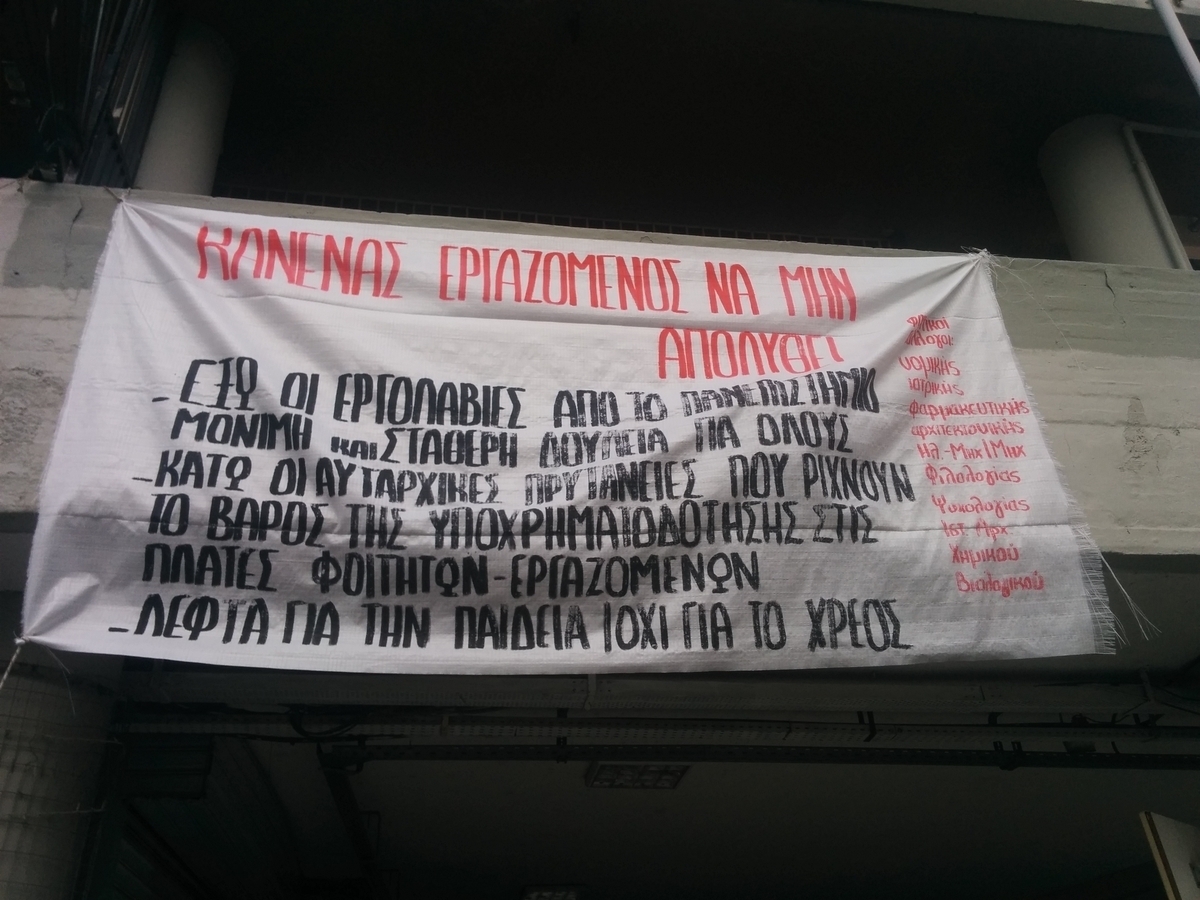 ΚΑΝΕΝΑΣ ΕΡΓΑΖΟΜΕΝΟΣ ΝΑ ΜΗΝ
ΑΠΟΛΥΘΕΙ
- ΕΞΩ ΟΙ ΕΡΓΟΛΑΒΙΕΣ ΑΠΟ ΤΟ ΠΑΝΕΠΙΣΤΗΜΙΟ
ΜΟΝΙΜΗ και ΣΤΑΘΕΡΗ ΔΟΥΛΕΙΑ ΓΙΑ ΟΛΟΥΣ
- ΚΑΤΩ ΟΙ ΑΥΤΑΡΧΙΚΕΣ ΠΡΥΤΑΝΕΙΕΣ ΠΟΥ ΡΙΧΝΟΥΝ
ΤΟ ΒΑΡΟΣ ΤΗΣ ΥΠΟΧΡΗΜΑΤΟΔΟΤΗΣΗΣ ΣΤΙΣ
ΠΛΑΤΕΣ ΦΟΙΤΗΤΩΝ-ΕΡΓΑΖΟΜΕΝΩΝ
- ΛΕΦΤΑ ΓΙΑ ΤΗΝ ΠΑΙΔΕΙΑ ΙΟΧΙ ΓΙΑ ΤΟ ΧΡΕΟΣ
νομικής
ιατρικής
φαρμακευτικής
αρχιτεκτονικής
Ηλ.-Μηχ/Μηχ
Φιλολογίας
Ψυχολογίας
Ιστ. Αρχ.
Χημικού
Βιολογικού